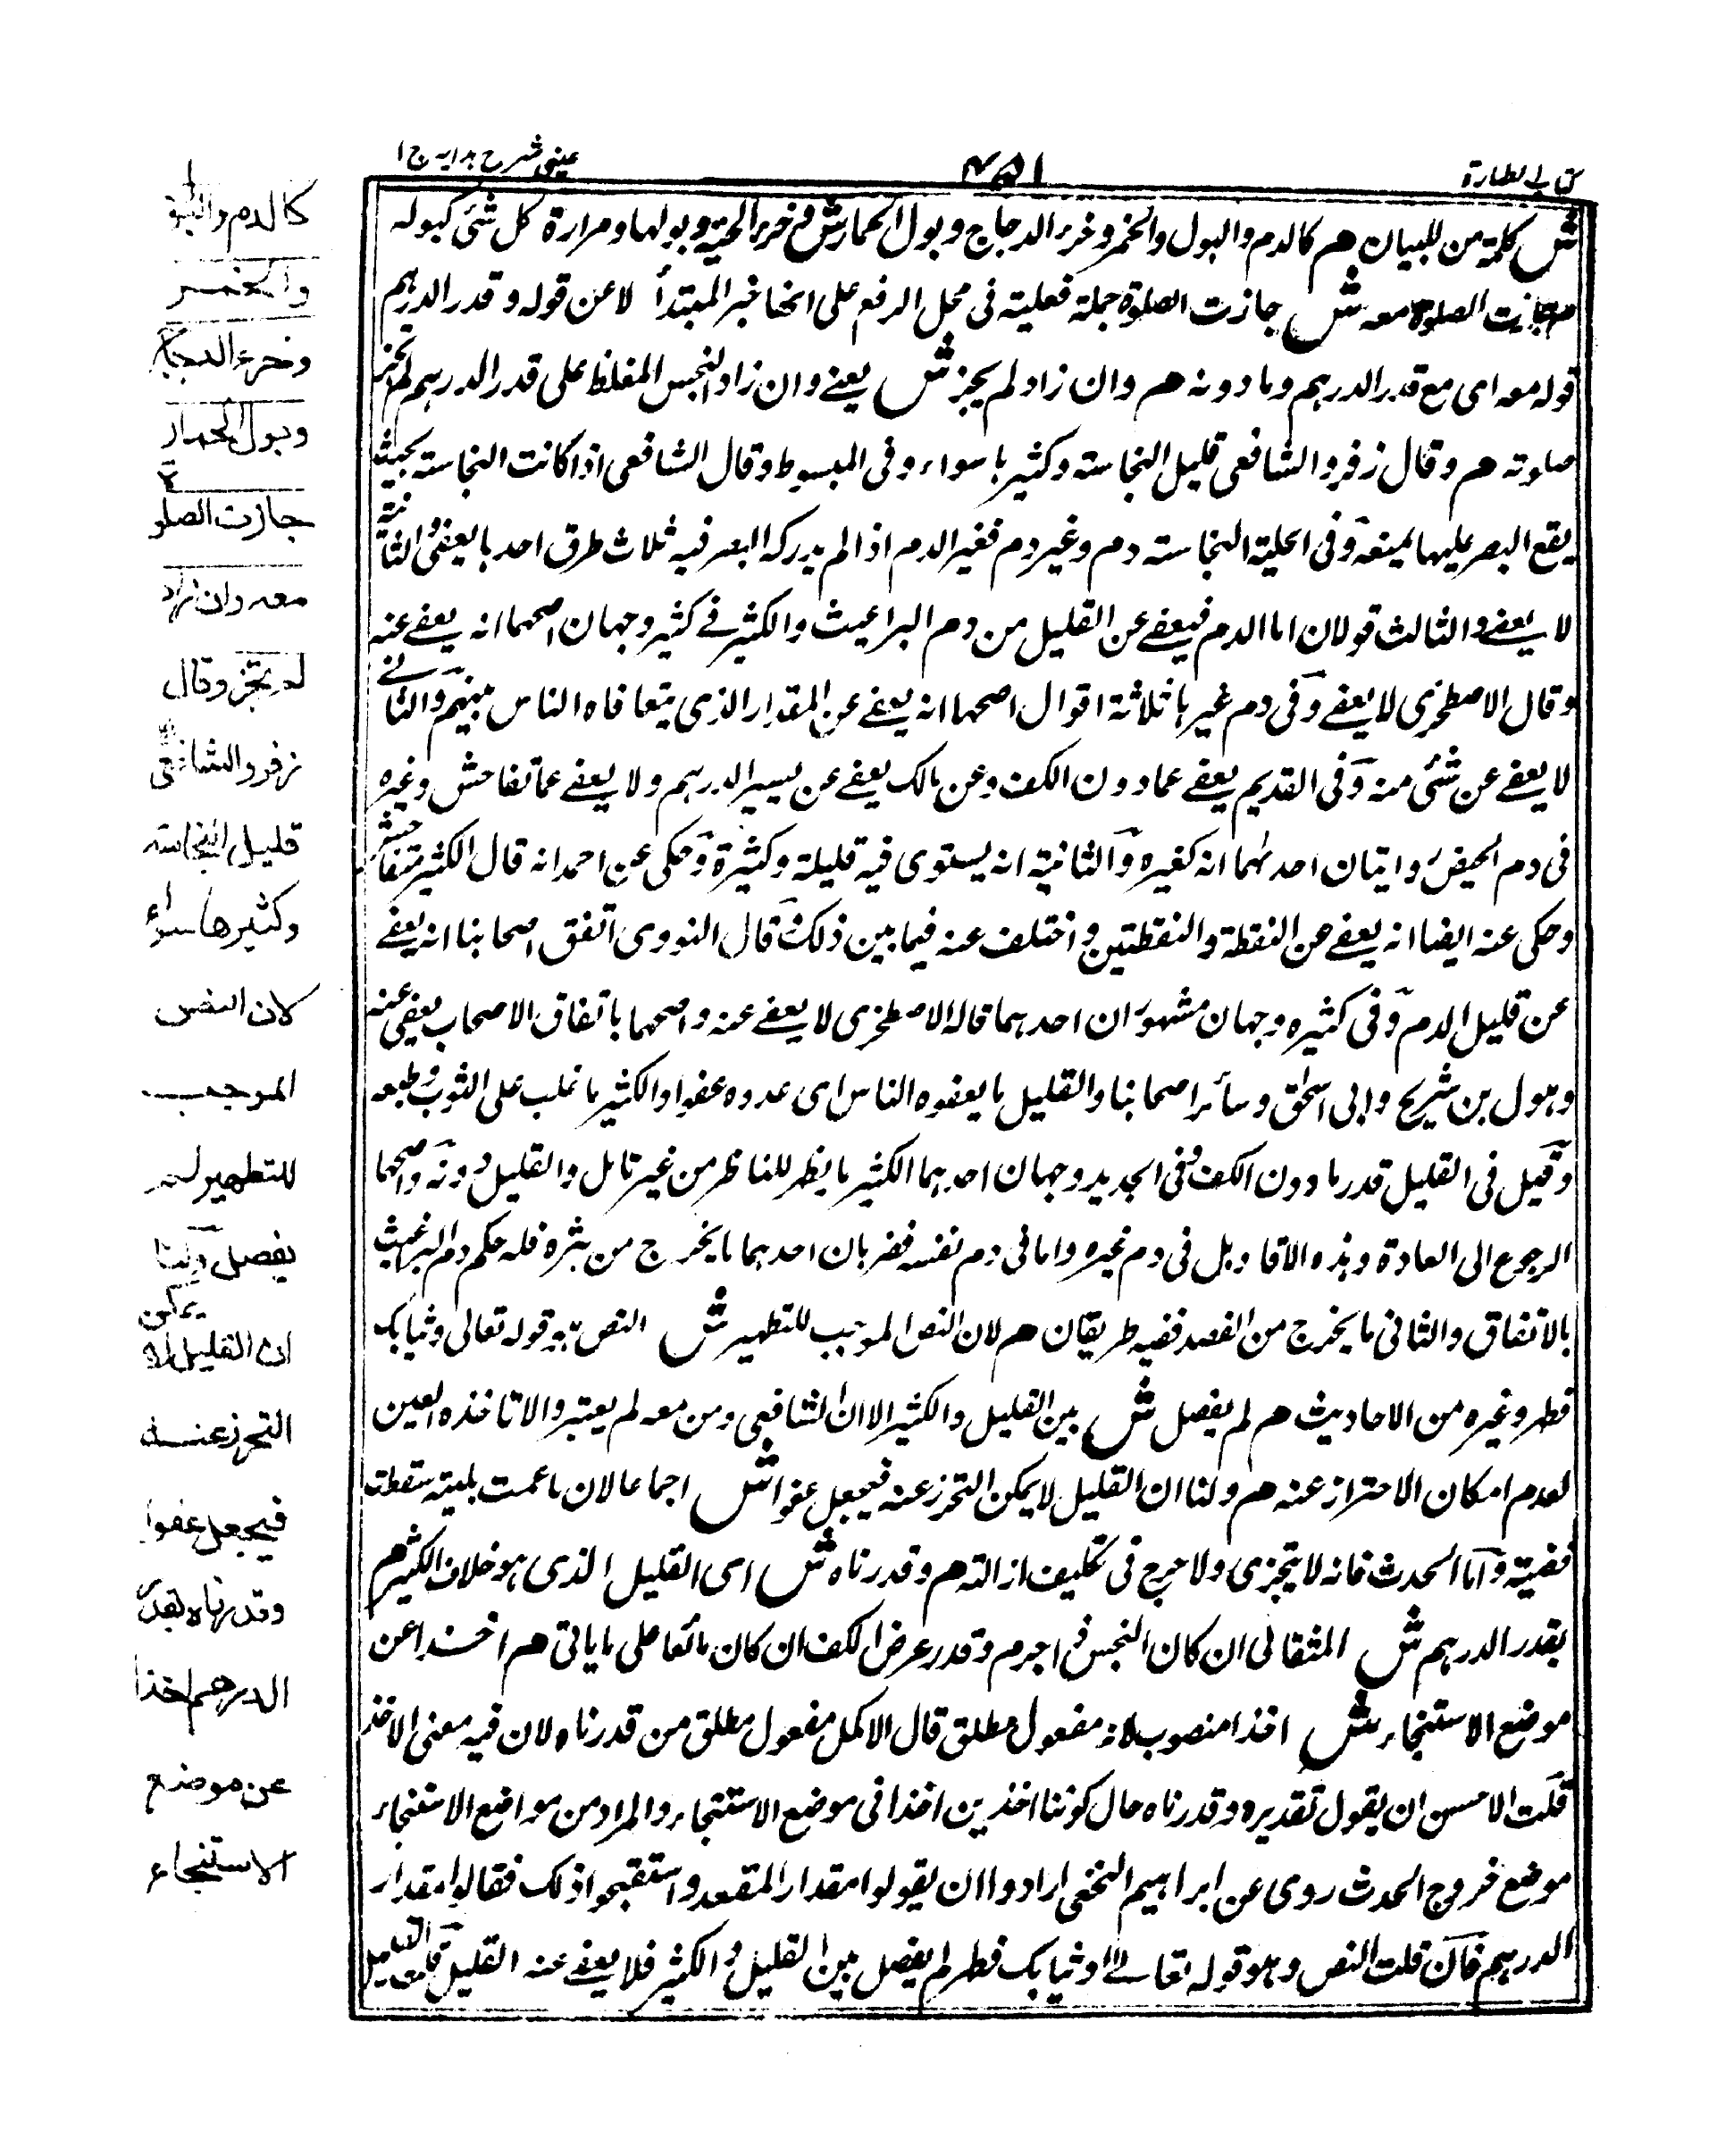 كتاب الطهارة
٤٥١
عيني شرح هدايه ج ١
ش كلمة من للبيان هم كالدم والبول والخمر وخرء الدجاج وبول الحمار ش وخرء الحية وبولها ومرارة كل شئ كبوله
هم جازت الصلوة معه ش جازت الصلوة جملة فعلية فى محل الرفع على انها خبر المبتدأ لا عن قوله وقدر الدرهم
قوله معه اى مع قدر الدرهم وما دونه هم وان زاد لم يجز ش يعنے وان زاد النجس المغلظ على قدر الدرهم لم تجز
صلوته هم وقال زفر والشافعى قليل النجاسته وكثيرها سواء وفى المبسوط وقال الشافعى اذا كانت النجاسته بحيث
يقع البصر عليها يمنعه وفى الحلية النجاسته دم وغير دم فغير الدم اذا لم يدركه البصر فيه ثلاث طرق احدها يعفى والثانية
لا يعفے والثالث قولان اما الدم فيعفے عن القليل من دم البراغيث والكثير فے كثير وجهان اصحهما انه يعفے عنه
وقال الاصطخرى لا يعفے وفى دم غيرها ثلاثة اقوال اصحها انه يعفے عن المقدار الذى يتعافاه الناس بينهم والثانے
لا يعفے عن شئ منه وفى القديم يعفے عما دون الكف وعن مالك يعفے عن يسير الدرهم ولا يعفے عما تفاحش وغيره
فى دم الحيض روايتان احدٰهما انه كغيره والثانية انه يستوى فيه قليلة وكثيرة وحكى عن احمد انه قال الكثير متفاحش
وحكى عنه ايضا انه يعفے عن النقطة والنقطتين واختلف عنه فيما بين ذلك قال النووى اتفق اصحابنا انه يعفے
عن قليل الدم وفى كثيره وجهان مشهوران احدهما قاله الاصطخرى لا يعفے عنه واصحهما باتفاق الاصحاب يعفى عنه
وهو ل بن شريح وابى اسحٰق وسائر اصحابنا والقليل ما يعفوه الناس اى عدوه عفوا والكثير ما غلب على الثوب وطبعه
وقيل فى القليل قدر ما دون الكف وفى الجديد وجهان احدهما الكثير ما يظهر للناظر من غير تامل والقليل دونه واصحهما
الرجوع الى العادة وهذه الاقاويل فى دم غيره واما فى دم نفسه فضربان احدهما ما يخرج من بثره فله حكم دم البراغيث
بالاتفاق والثانى ما يخرج من الفصد ففيه طريقان هم لان النص الموجب للتطهير ش النص هو قوله تعالى وثيابك
فطهر وغيره من الاحاديث هم لم يفصل ش بين القليل والكثير الا ان الشافعى ومن معه لم يعتبر والا تاخذه العين
لعدم امكان الاحتراز عنه هم ولنا ان القليل لا يمكن التحرز عنه فيجعل عفوا ش اجماعا لان ما عمت بليته سقطت
قضيته واما الحدث فانه لا يتجزى ولا حرج فى تكليف ازالته هم وقدرناه ش اى القليل الذى هو خلاف الكثير هم
بقدر الدرهم ش المثقالى ان كان النجس ذا جرم وقدر عرض الكف ان كان مائعا على ما ياتى هم اخذا عن
موضع الاستنجاء ش اخذا منصوب لانه مفعول مطلق قال الاكمل مفعول مطلق من قدرناه لان فيه معنى الاخذ
قلت الاحسن ان يقول تقديره وقدرناه حال كوننا اخذين اخذا فى موضع الاستنجاء والمراد من مواضع الاستنجاء
موضع خروج الحدث روى عن ابراهيم النخعى ارادوا ان يقولوا مقدار المقعد واستقبحوا ذلك فقالوا مقدار
الدرهم فان قلت النص وهو قوله تعالے وثيابك فطهر لم يفصل بين القليل والكثير فلا يعفے عنه القليل قلت القليل
كالدم والبول
والخمر
وخرء الدجاج
وبول الحمار
جازت الصلوة
معه وان زاد
لم تجز وقال
زفر والشافعي
قليل النجاسته
وكثيرها سواء
كان النص
الموجب
للتطهير لم
يفصل ولنا
ان القليل لا يمكن
التحرز عنه
فيجعل عفوا
وقدرناه بقدر
الدرهم اخذا
عن موضع
الاستنجاء